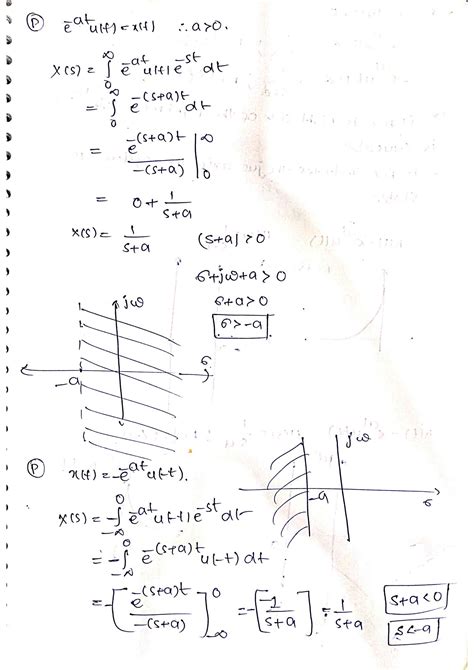 (P) e^{-at}u(t) = x(t) ∴ a>0.
X(s) = ∫_0^∞ e^{-at}u(t) e^{-st} dt
= ∫_0^∞ e^{-(s+a)t} dt
= e^{-(s+a)t} / -(s+a) |_0^∞
= 0 + 1/(s+a)
X(s) = 1/(s+a) (s+a) > 0
σ+jω+a > 0
σ+a > 0
σ > -a
jω
σ
-a
(P) x(t) = -e^{-at}u(-t).
jω
-a
σ
X(s) = -∫_{-∞}^0 e^{-at}u(-t) e^{-st} dt
= -∫_{-∞}^0 e^{-(s+a)t} u(-t) dt
= -[e^{-(s+a)t} / -(s+a)]_{-∞}^0 = -[-1/(s+a)] = 1/(s+a) s+a<0
s<-a